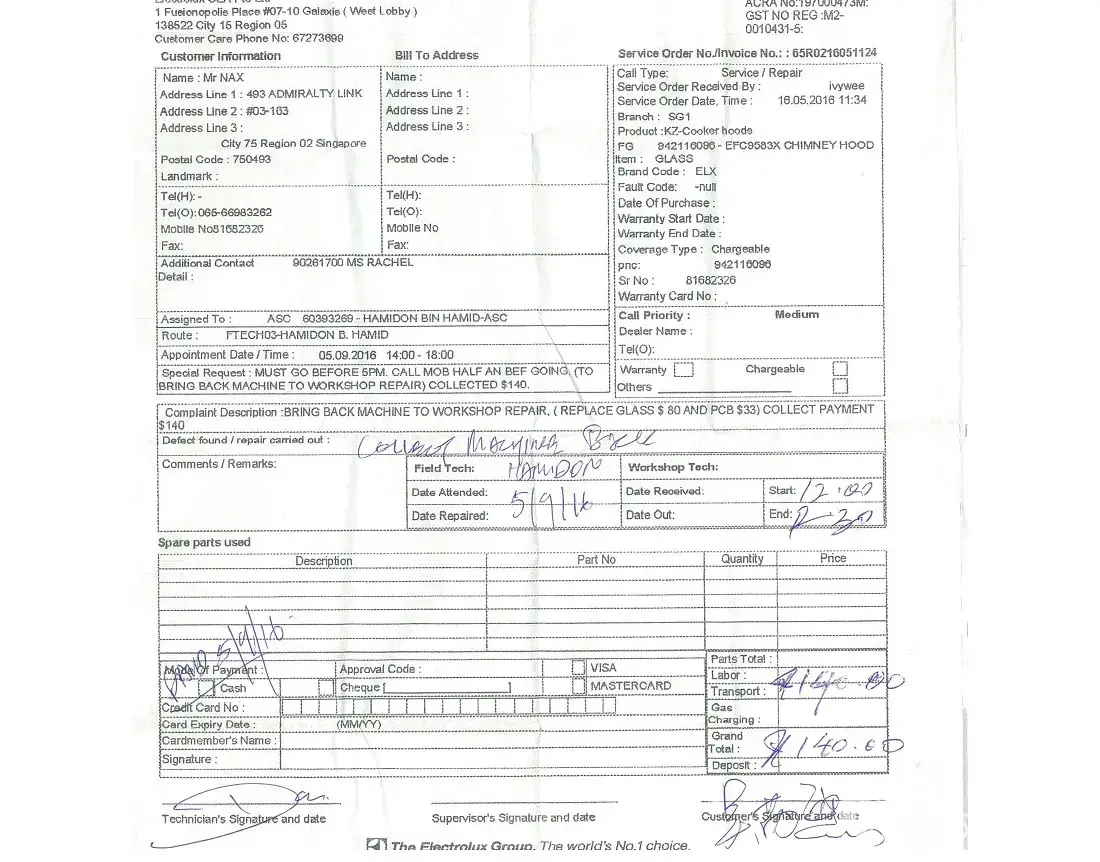 1 Fusionopolis Place #07-10 Galaxis ( West Lobby )
138522 City 15 Region 05
Customer Care Phone No: 67273699
ACRA No:197000473M:
GST NO REG :M2-
0010431-5:
Customer Information
Bill To Address
Service Order No./Invoice No.: : 65R0216051124
Name : Mr NAX
Address Line 1 : 493 ADMIRALTY LINK
Address Line 2 : #03-163
Address Line 3 :
City 75 Region 02 Singapore
Postal Code : 750493
Landmark :
Name :
Address Line 1 :
Address Line 2 :
Address Line 3 :
Postal Code :
Tel(H): -
Tel(O):065-66983262
Mobile No81682326
Fax:
Tel(H):
Tel(O):
Mobile No
Fax:
Additional Contact 90261700 MS RACHEL
Detail :
Assigned To : ASC 60393269 - HAMIDON BIN HAMID-ASC
Route : FTECH03-HAMIDON B. HAMID
Appointment Date / Time : 05.09.2016 14:00 - 18:00
Special Request : MUST GO BEFORE 5PM. CALL MOB HALF AN BEF GOING, (TO
BRING BACK MACHINE TO WORKSHOP REPAIR) COLLECTED $140.
Call Type: Service / Repair
Service Order Received By : ivywee
Service Order Date, Time : 16.05.2016 11:34
Branch : SG1
Product :KZ-Cooker hoods
FG 942116096 - EFC9583X CHIMNEY HOOD
Item : GLASS
Brand Code : ELX
Fault Code: -null
Date Of Purchase :
Warranty Start Date :
Warranty End Date :
Coverage Type : Chargeable
pnc: 942116096
Sr No : 81682326
Warranty Card No :
Call Priority : Medium
Dealer Name :
Tel(O):
Warranty
Chargeable
Others
Complaint Description :BRING BACK MACHINE TO WORKSHOP REPAIR, ( REPLACE GLASS $ 80 AND PCB $33) COLLECT PAYMENT
$140
Defect found / repair carried out : Collect Machine Back
Comments / Remarks:
Field Tech: HAMIDON
Date Attended: 5/9/16
Date Repaired:
Workshop Tech:
Date Received:
Date Out:
Start: 12.00
End:
Spare parts used
Description Part No Quantity Price
5/9/16
Mode Of Payment :
Cash
Approval Code :
Cheque [ ]
VISA
MASTERCARD
Credit Card No :
Card Expiry Date : (MM/YY)
Cardmember's Name :
Signature :
Parts Total :
Labor :
Transport :
Gas
Charging :
Grand
Total : $140.00
Deposit :
Technician's Signature and date
Supervisor's Signature and date
Customer's Signature and date
The Electrolux Group. The world's No.1 choice.